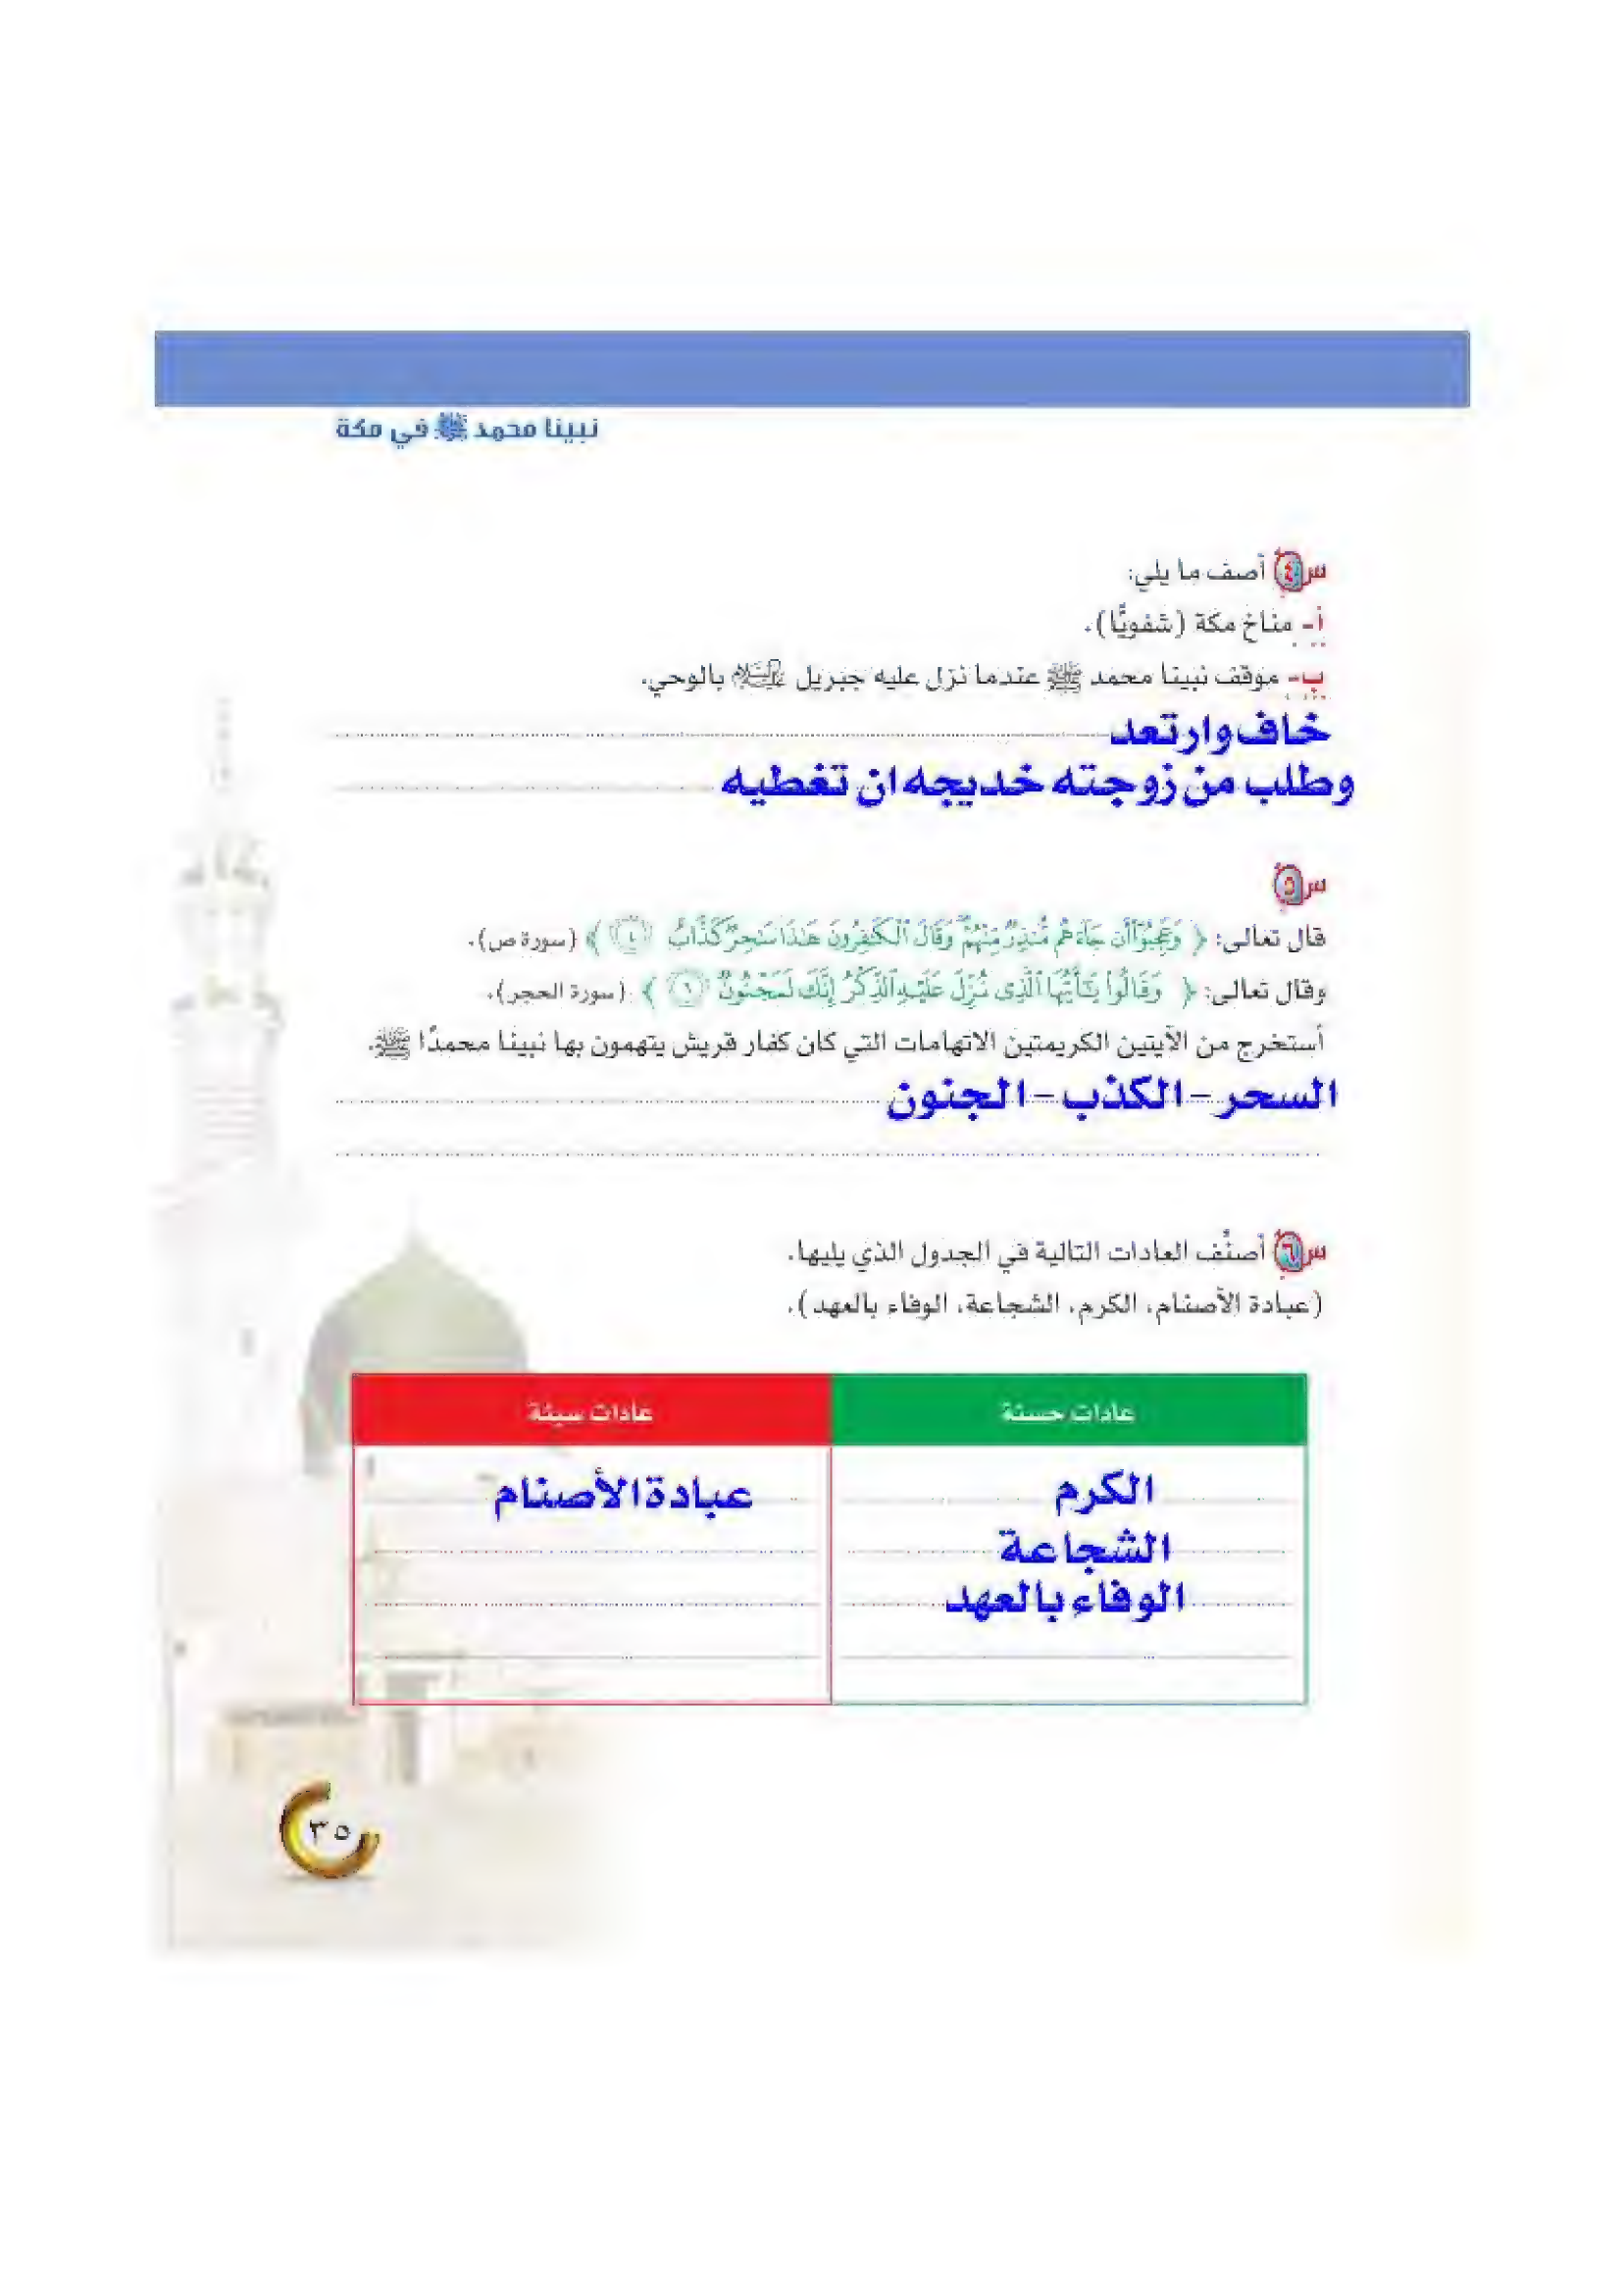 نبينا محمد ﷺ في مكة
س٤ أصف ما يلي:
أ- مناخ مكة (شفويًّا).
ب- موقف نبينا محمد ﷺ عندما نزل عليه جبريل عليه السلام بالوحي.
خاف وارتعد
وطلب من زوجته خديجه ان تغطيه
س٥
قال تعالى: ﴿ وَعَجِبُوٓا۟ أَن جَآءَهُم مُّنذِرٌ مِّنْهُمْ وَقَالَ ٱلْكَـٰفِرُونَ هَـٰذَا سَـٰحِرٌ كَذَّابٌ ٤ ﴾ (سورة ص).
وقال تعالى: ﴿ وَقَالُوا۟ يَـٰٓأَيُّهَا ٱلَّذِى نُزِّلَ عَلَيْهِ ٱلذِّكْرُ إِنَّكَ لَمَجْنُونٌ ٦ ﴾ (سورة الحجر).
أستخرج من الآيتين الكريمتين الاتهامات التي كان كفار قريش يتهمون بها نبينا محمدًا ﷺ.
السحر - الكذب - الجنون
س٦ أصنِّف العادات التالية في الجدول الذي يليها.
(عبادة الأصنام، الكرم، الشجاعة، الوفاء بالعهد).
عادات حسنة عادات سيئة
الكرم عبادة الأصنام
الشجاعة
الوفاء بالعهد
٣٥